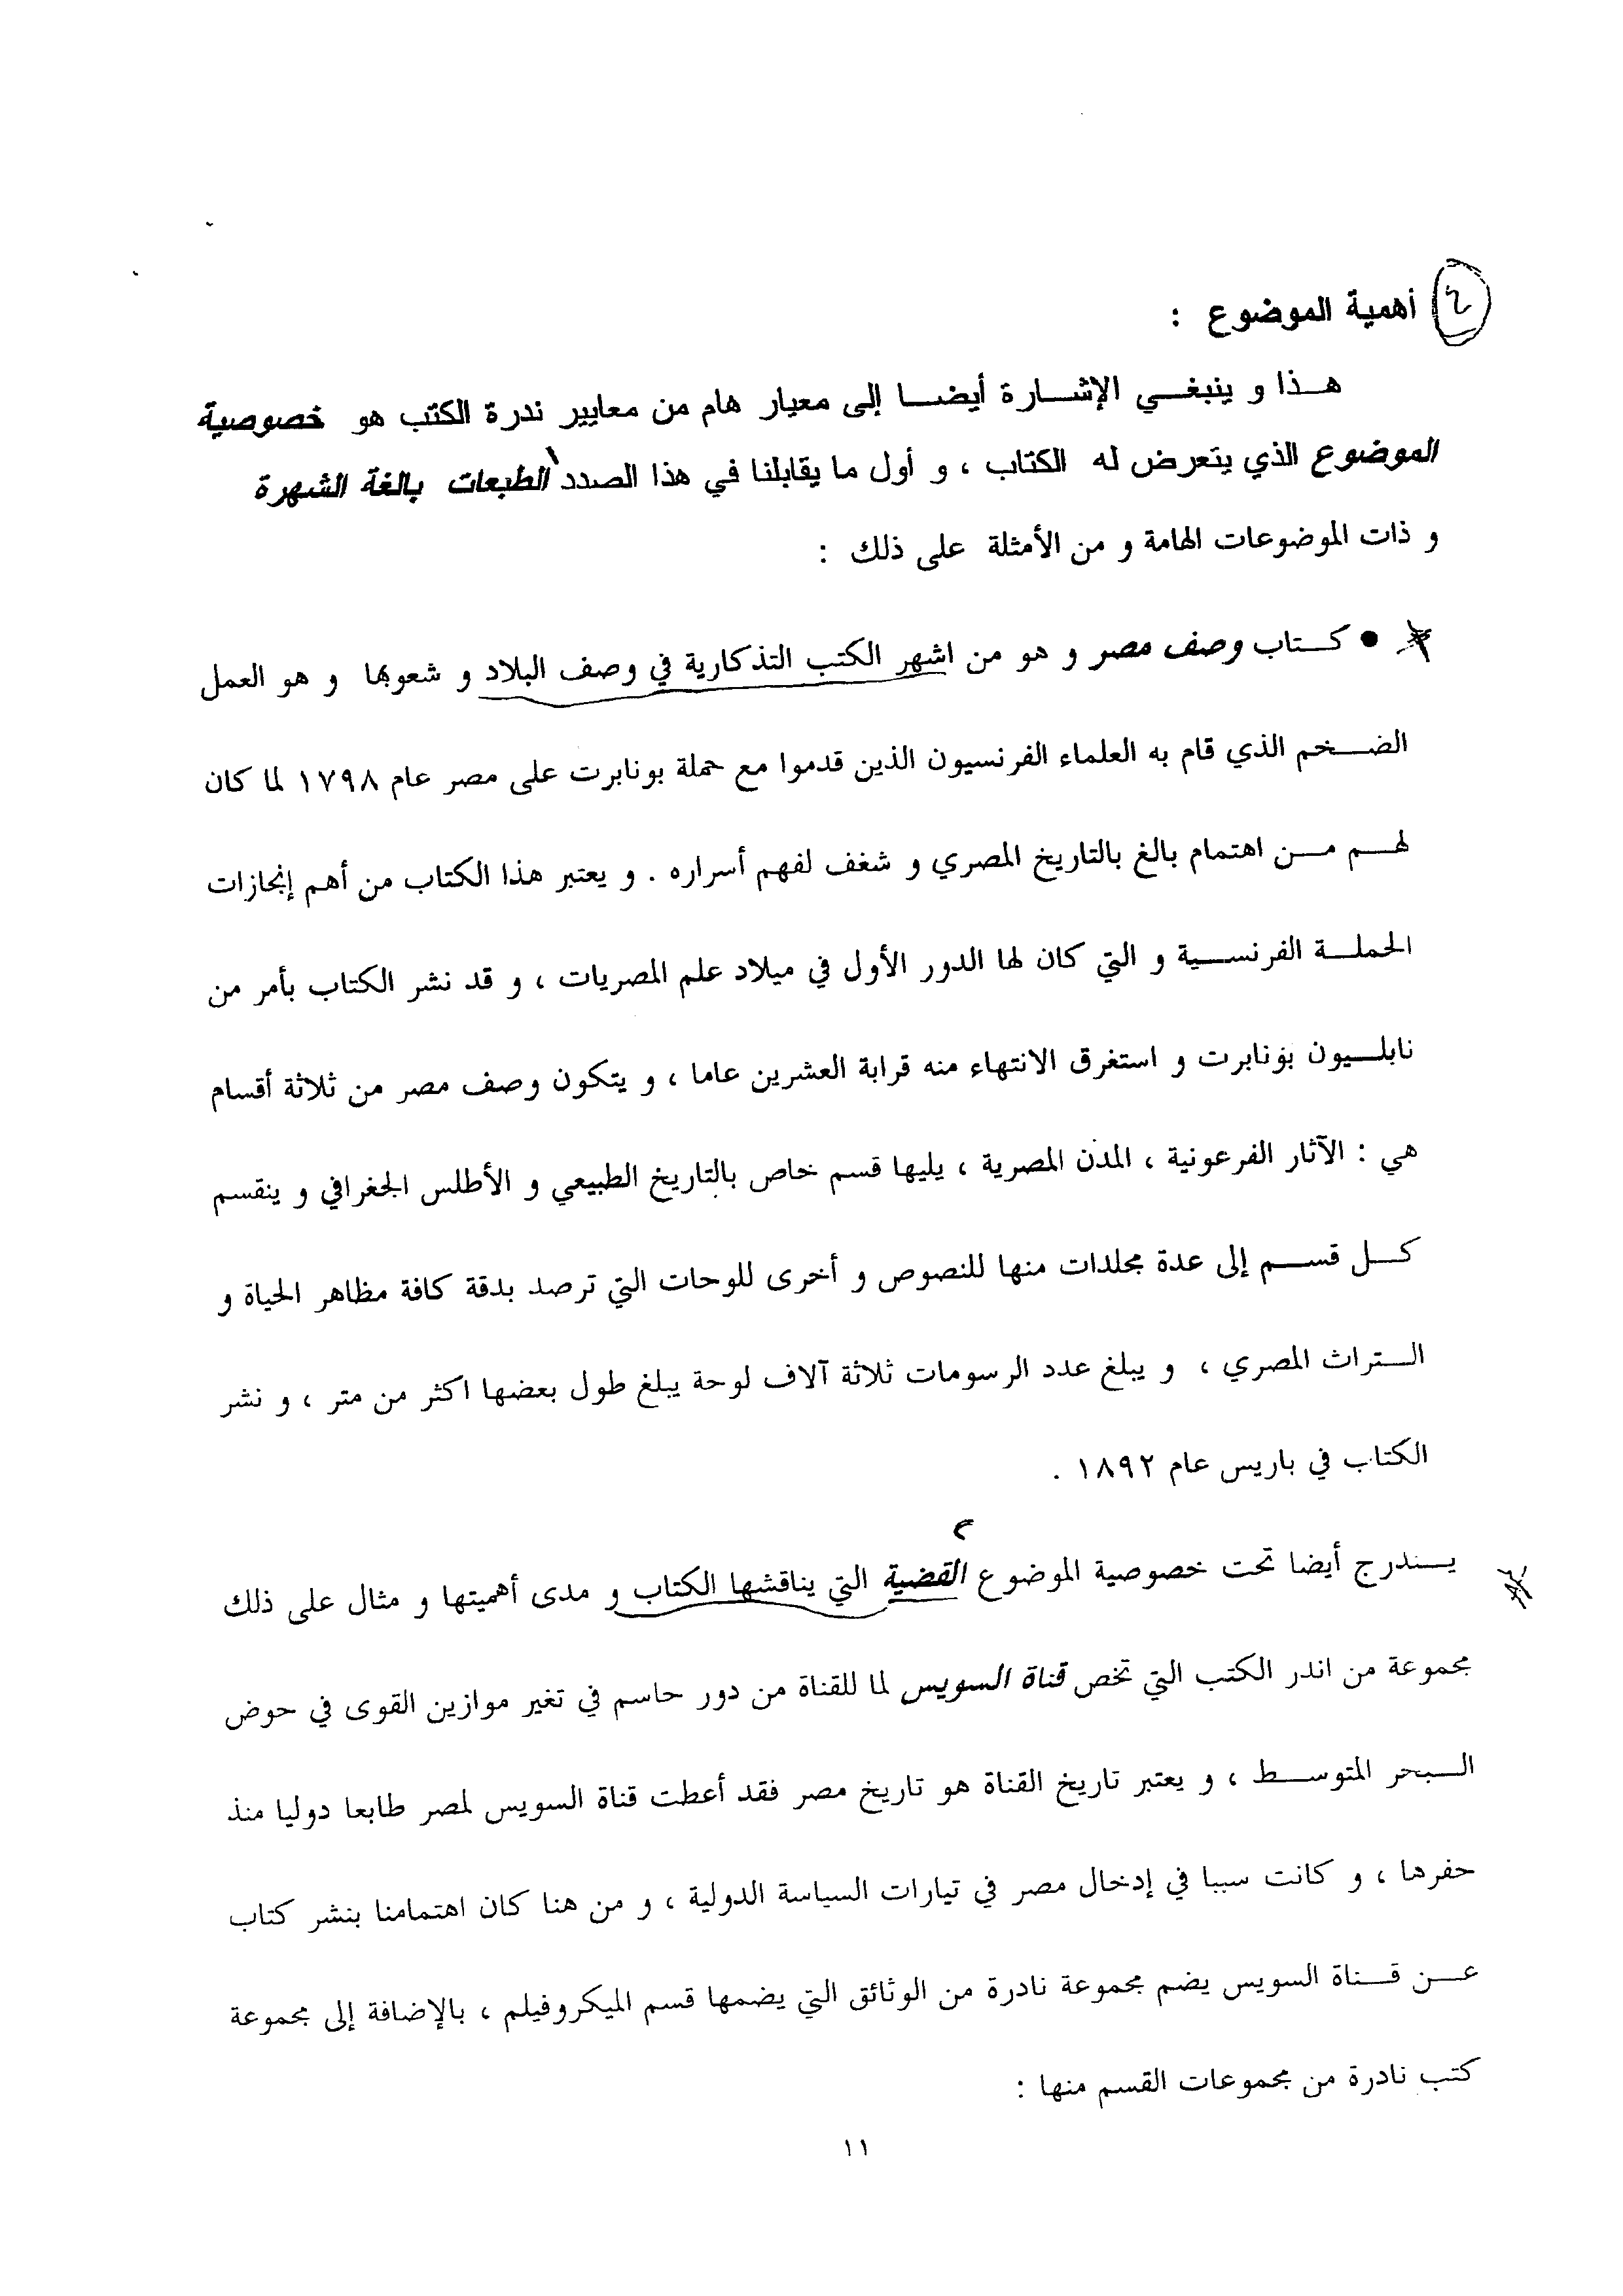 ٤ أهمية الموضوع :
هذا و ينبغي الإشارة أيضا إلى معيار هام من معايير ندرة الكتب هو خصوصية
الموضوع الذي يتعرض له الكتاب ، و أول ما يقابلنا في هذا الصدد ١ الطبعات بالغة الشهرة
و ذات الموضوعات الهامة و من الأمثلة على ذلك :
● كتاب وصف مصر و هو من اشهر الكتب التذكارية في وصف البلاد و شعوبها و هو العمل
الضخم الذي قام به العلماء الفرنسيون الذين قدموا مع حملة بونابرت على مصر عام ١٧٩٨ لما كان
لهم من اهتمام بالغ بالتاريخ المصري و شغف لفهم أسراره . و يعتبر هذا الكتاب من أهم إنجازات
الحملة الفرنسية و التي كان لها الدور الأول في ميلاد علم المصريات ، و قد نشر الكتاب بأمر من
نابليون بونابرت و استغرق الانتهاء منه قرابة العشرين عاما ، و يتكون وصف مصر من ثلاثة أقسام
هي : الآثار الفرعونية ، المدن المصرية ، يليها قسم خاص بالتاريخ الطبيعي و الأطلس الجغرافي و ينقسم
كل قسم إلى عدة مجلدات منها للنصوص و أخرى للوحات التي ترصد بدقة كافة مظاهر الحياة و
التراث المصري ، و يبلغ عدد الرسومات ثلاثة آلاف لوحة يبلغ طول بعضها اكثر من متر ، و نشر
الكتاب في باريس عام ١٨٩٢ .
يندرج أيضا تحت خصوصية الموضوع ٢ القضية التي يناقشها الكتاب و مدى أهميتها و مثال على ذلك
مجموعة من اندر الكتب التي تخص قناة السويس لما للقناة من دور حاسم في تغير موازين القوى في حوض
البحر المتوسط ، و يعتبر تاريخ القناة هو تاريخ مصر فقد أعطت قناة السويس لمصر طابعا دوليا منذ
حفرها ، و كانت سببا في إدخال مصر في تيارات السياسة الدولية ، و من هنا كان اهتمامنا بنشر كتاب
عن قناة السويس يضم مجموعة نادرة من الوثائق التي يضمها قسم الميكروفيلم ، بالإضافة إلى مجموعة
كتب نادرة من مجموعات القسم منها :
١١